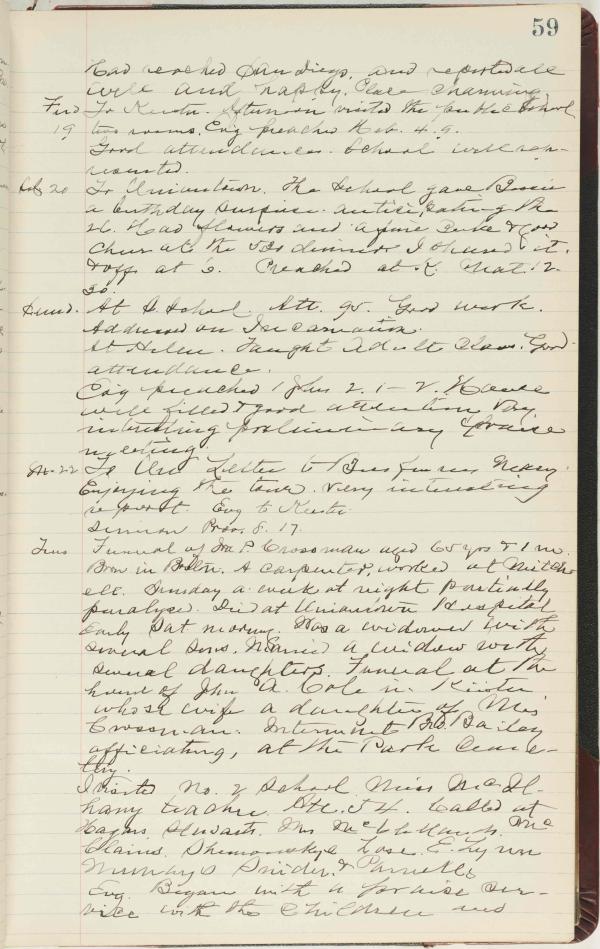 59
had reached San Diego, and reported all
well and happy. Place charming
Frid To Keister. Afternoon visited the public School
19 two rooms. Evg preached Hab. 4.9.
Good attendance. School well rep-
resented.
Sat 20 To Uniontown. The School gave Bessie
a birthday surprise anticipating the
26. Had flowers and a fine cake & good
cheer at the dinner I shared it
& off at 6. Preached at K. Mat. 12.
20.
Sund. At S. School. Att. 95. Good work.
Address on Incarnation.
At Helen. Taught Adult Class. Good
attendance.
Evg preached 1 John 2. 1-2. House
well filled & good attention. Very
interesting preliminary praise
meeting.
M. 22 To Letter from Mary.
Enjoying the tour. Very interesting
report. Evg to Keister
Sermon Prov. 8. 17.
Tues Funeral of Crossman aged 65 yrs & 1 m.
Born in A carpenter, worked at Mitch-
ell. Tuesday a week at night partially
paralyze. Died at Uniontown Hospital
Early Sat morning. Was a widower with
several sons. Married a widow with
several daughters. Funeral at the
home of John A. Cole in Keister
whose wife a daughter of Mrs
Crossman. Interment Bro. Bailey
officiating, at the Park Ceme-
tery.
I visited No. 2 School Miss McIl-
hany teacher. Att. 54. Called at
Hagers, Stewarts, Mrs Mc
Clains, Rose, E. Lynn
Murrays Snider, & Parnells
Evg. Began with a praise ser-
vice with the Children and